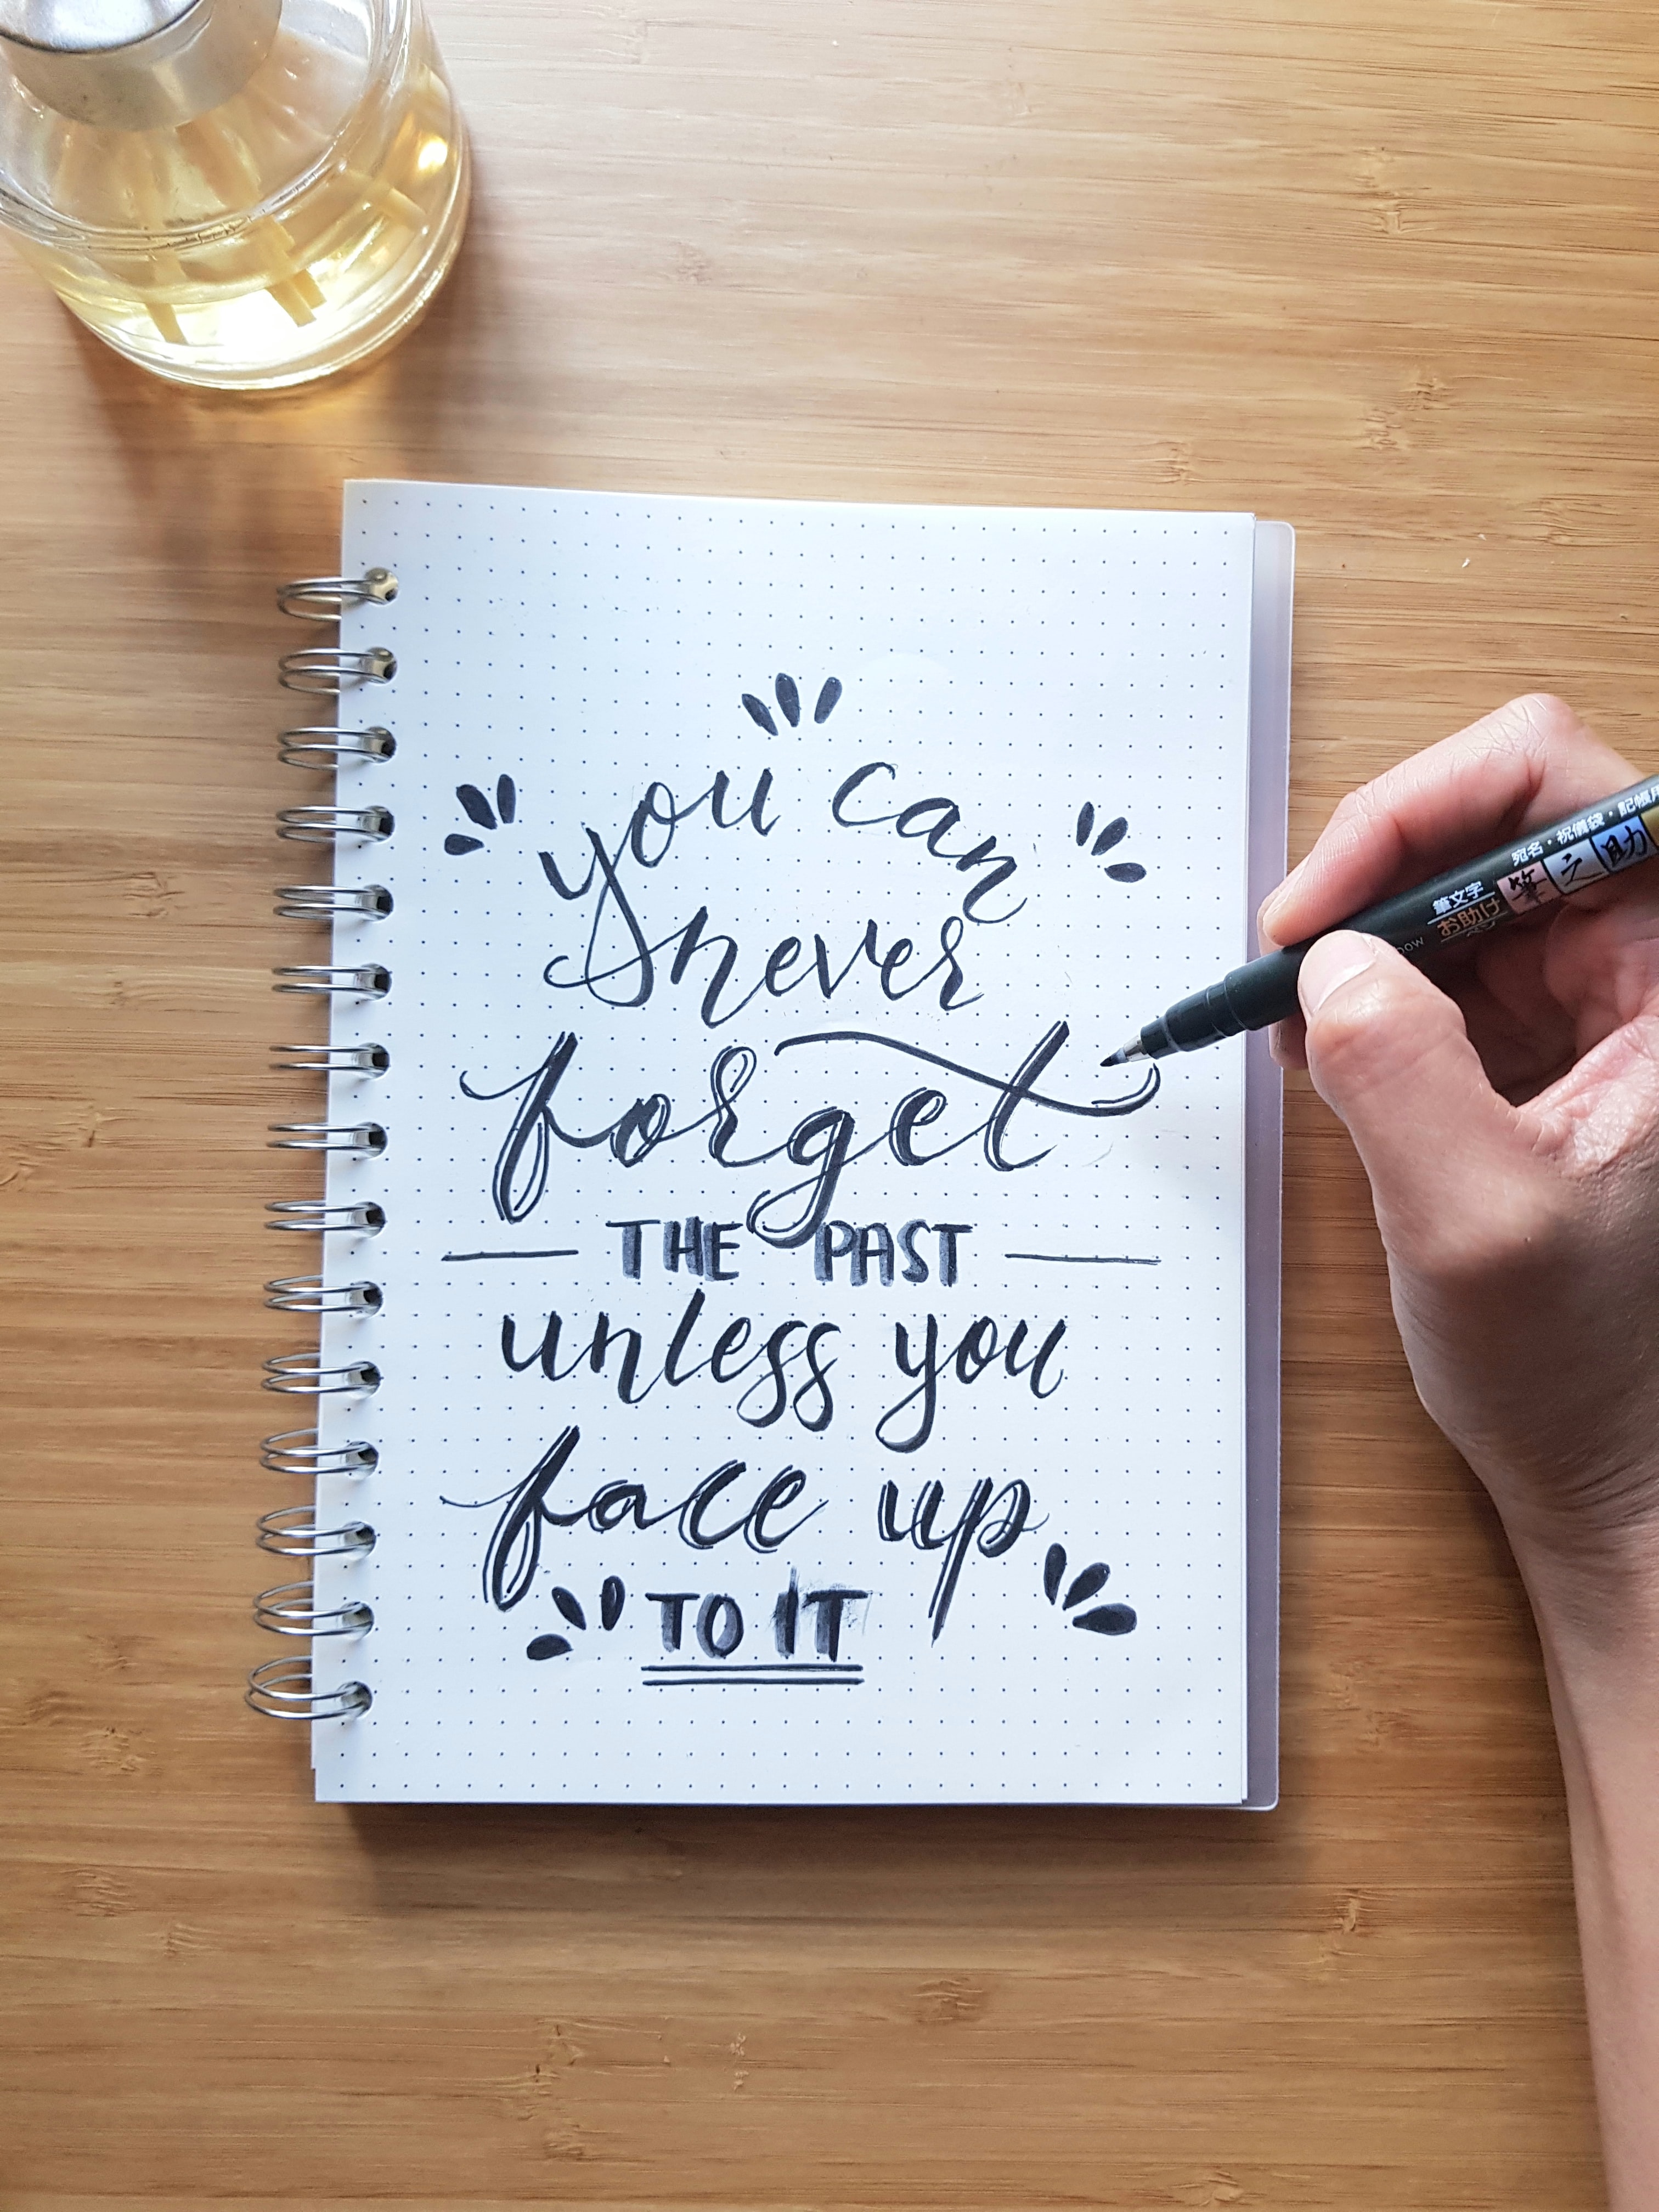 you can
never
forget
THE PAST
unless you
face up
TO IT
宛名・祝儀袋・記帳用
筆之助
筆文字
お助け
ペン
bow